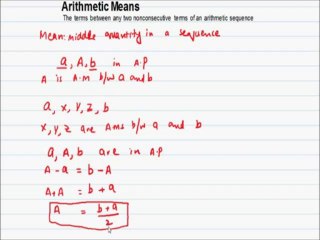 Arithmetic Means
The terms between any two nonconsecutive terms of an arithmetic sequence
Mean: middle quantity in a sequence
a, A, b in A.P
A is A.M b/w a and b
a, x, y, z, b
x, y, z are Ams b/w a and b
a, A, b are in A.P
A - a = b - A
A + A = b + a
A = b + a / 2